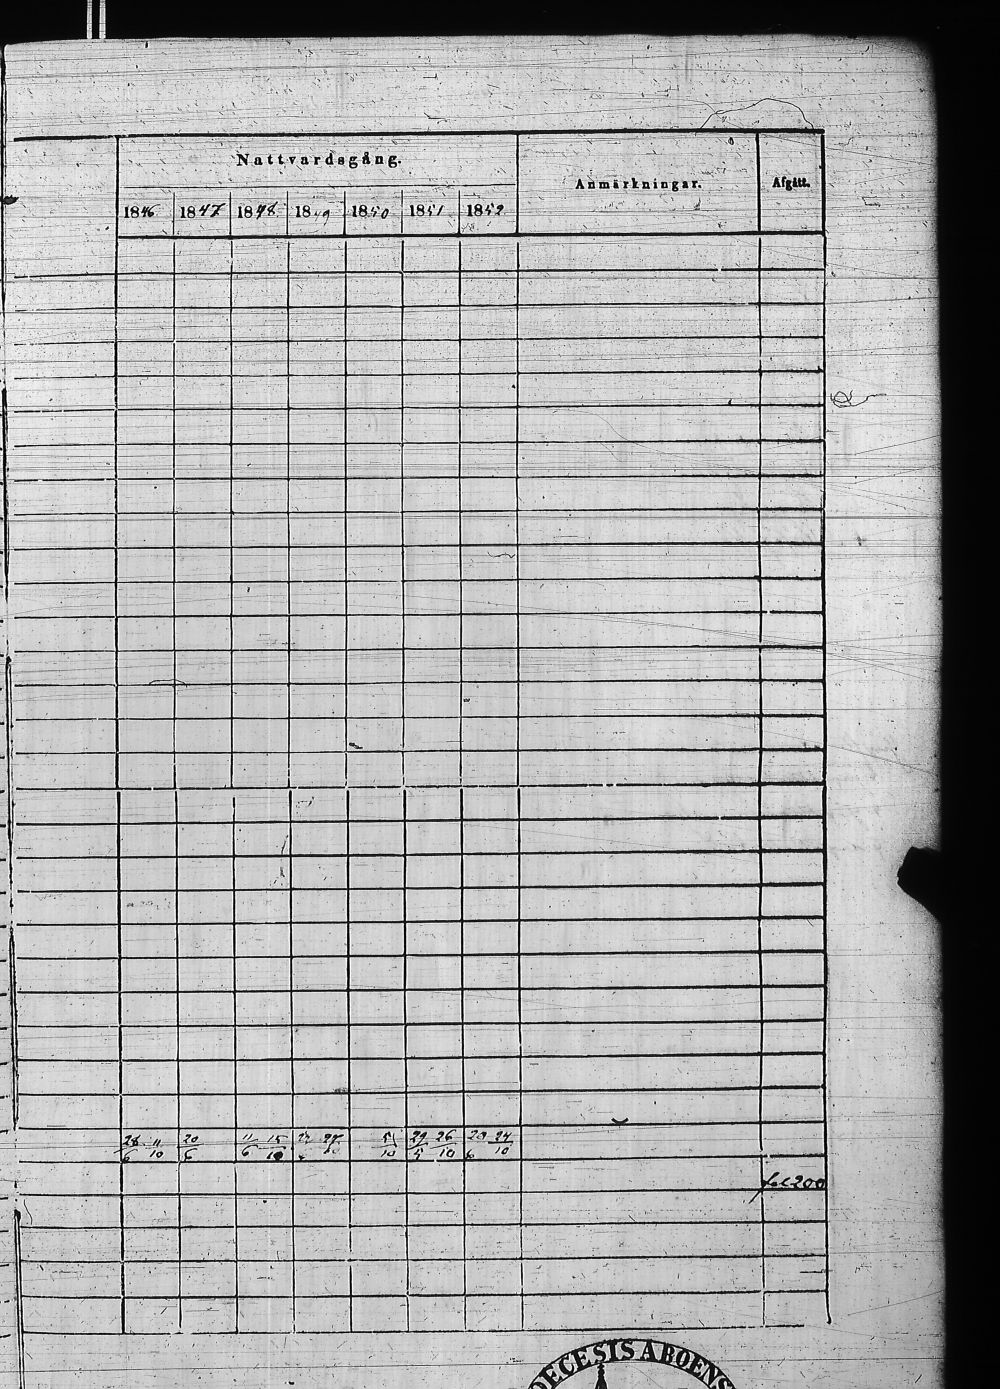 Nattvardsgång.
Anmärkningar.
Afgått.
1846 1847 1848 1849 1850 1851 1852
28/6 11/10 20/6 11/6 15/10 5/10 29/5 26/10 20/6 24/10
fol 200
DECESIS ABOENS